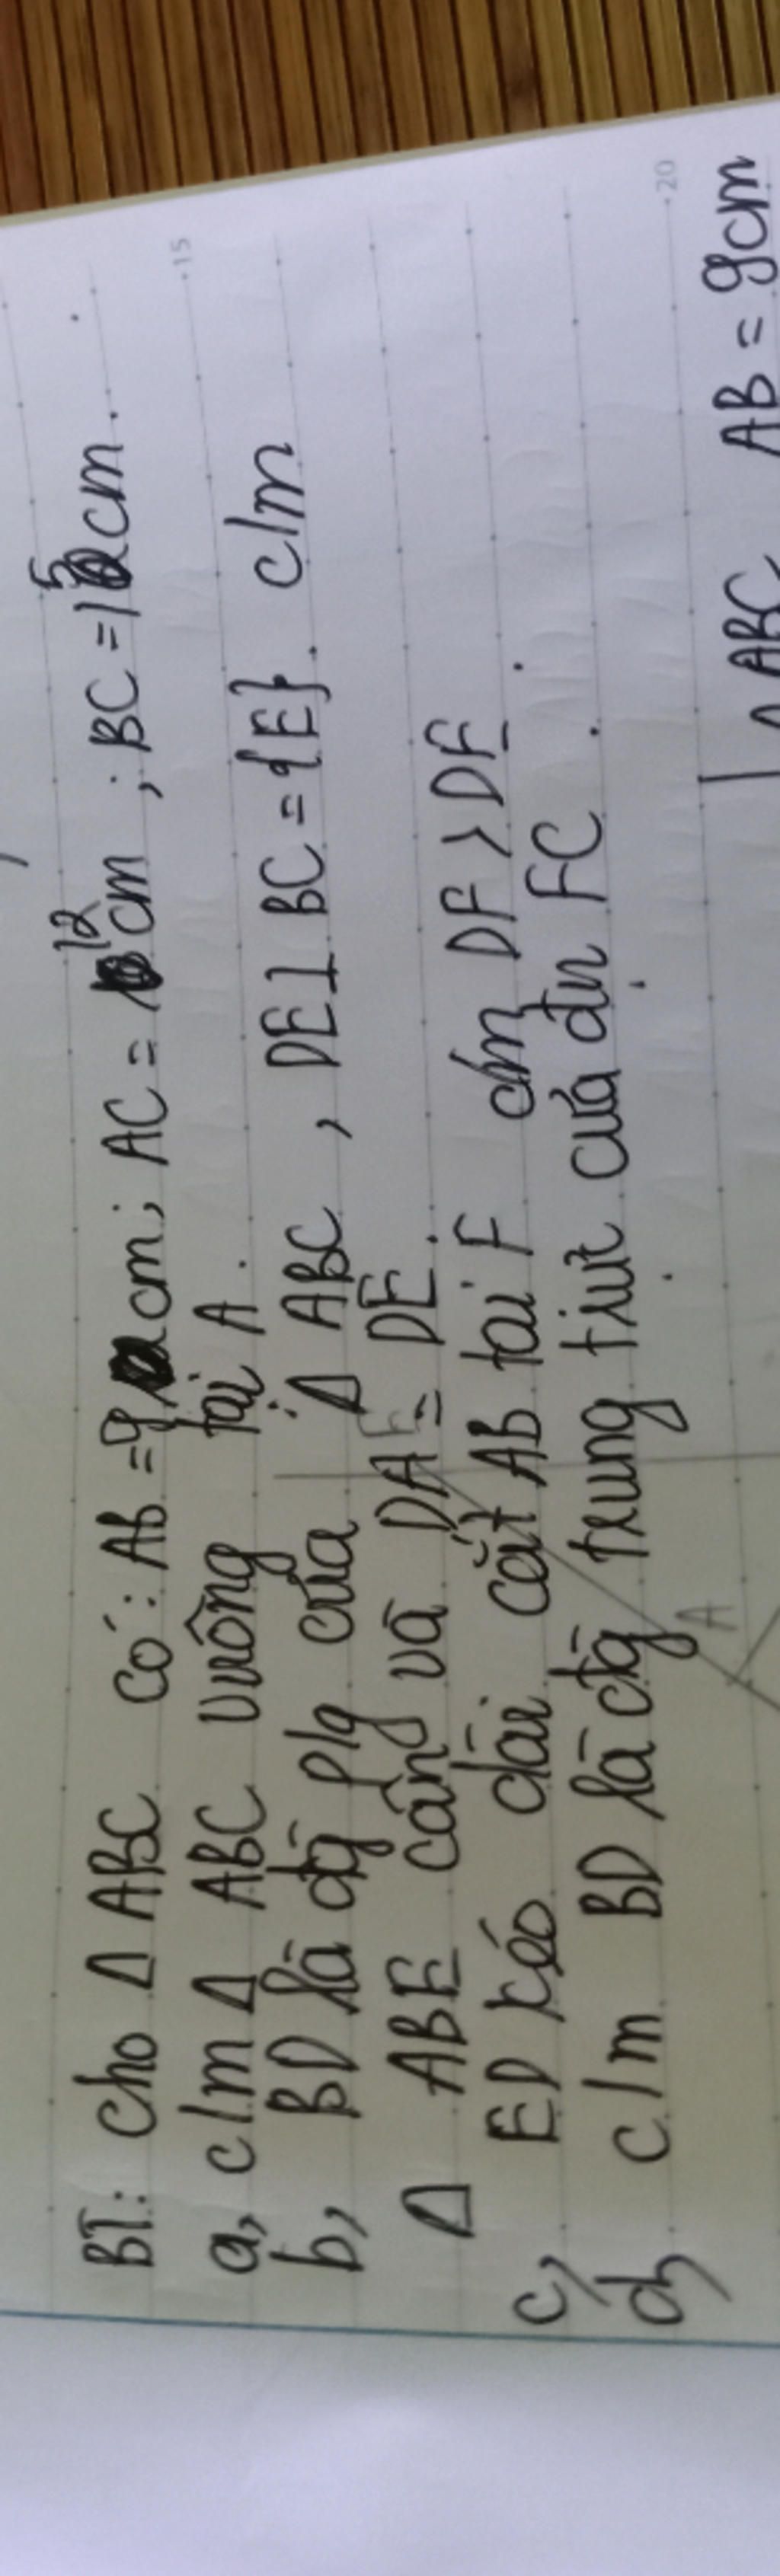 BT: Cho Δ ABC có: AB = 9 cm; AC = 12 cm; BC = 15 cm.
a, c/m Δ ABC vuông tại A.
b, BD là đg p/g của Δ ABC, DE ⊥ BC = {E}. c/m
Δ ABE cân và DA = DE.
c, ED kéo dài cắt AB tại F c/m DF > DE.
d, c/m BD là đg trung trực của đn FC.
Δ ABC AB = 9cm
15
20
A